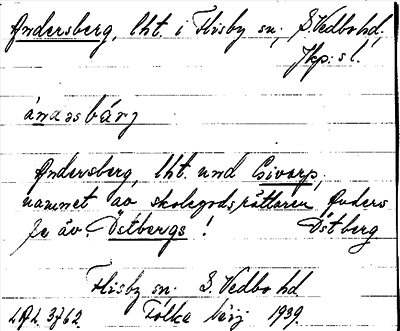 Andersberg, lht. i Flisby sn, S. Vedbo hd,
Jkp:s l.
ándəsbárj
Andersberg, lht. und Sivarp,
namnet av skolgodsrättaren Anders
Se äv. Östbergs! Östberg
Flisby sn. S. Vedbo hd
3762. Folke 1939.